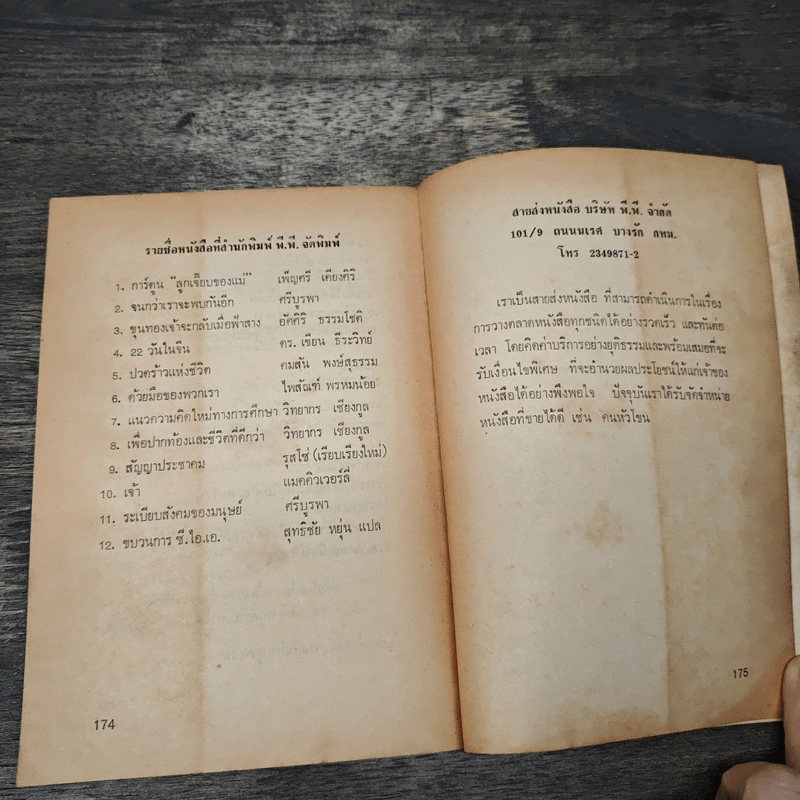 รายชื่อหนังสือที่สำนักพิมพ์ พี.พี. จัดพิมพ์
1. การ์ตูน "ลูกเจี๊ยบของแม่" เพ็ญศรี เคียงศิริ
2. จนกว่าเราจะพบกันอีก ศรีบูรพา
3. ขุนทองเจ้าจะกลับเมื่อฟ้าสาง อัศศิริ ธรรมโชติ
4. 22 วันในจีน ดร. เขียน ธีระวิทย์
5. ปวดร้าวแห่งชีวิต คมสัน พงษ์สุธรรม
6. ด้วยมือของพวกเรา ไพสัณฑ์ พรหมน้อย
7. แนวความคิดใหม่ทางการศึกษา วิทยากร เชียงกูล
8. เพื่อปากท้องและชีวิตที่ดีกว่า วิทยากร เชียงกูล
9. สัญญาประชาคม รุสโซ่ (เรียบเรียงใหม่)
10. เจ้า แมคคิวเวอร์ลี่
11. ระเบียบสังคมของมนุษย์ ศรีบูรพา
12. ขบวนการ ซี.ไอ.เอ. สุทธิชัย หยุ่น แปล
174
สายส่งหนังสือ บริษัท พี.พี. จำกัด
101/9 ถนนนเรศ บางรัก กทม.
โทร 2349871-2
เราเป็นสายส่งหนังสือ ที่สามารถดำเนินการในเรื่อง
การวางตลาดหนังสือทุกชนิดได้อย่างรวดเร็ว และทันต่อ
เวลา โดยคิดค่าบริการอย่างยุติธรรมและพร้อมเสมอที่จะ
รับเงื่อนไขพิเศษ ที่จะอำนวยผลประโยชน์ให้แก่เจ้าของ
หนังสือได้อย่างพึงพอใจ ปัจจุบันเราได้รับจัดจำหน่าย
หนังสือที่ขายได้ดี เช่น คนหัวโขน
175